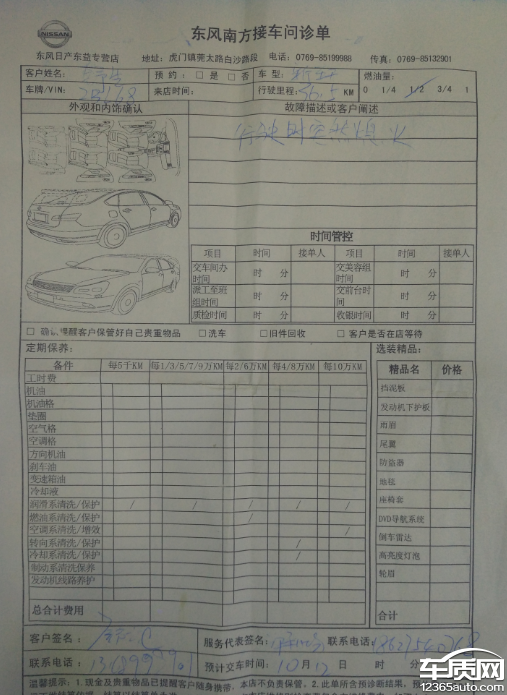 NISSAN
东风南方接车问诊单
东风日产东益专营店 地址：虎门镇莞太路白沙路段 电话：0769-85199988 传真：0769-85132901
客户姓名： 预约：□是 □否 车型： 燃油量：
车牌/VIN： 来店时间： 行驶里程： KM 0 1/4 1/2 3/4 1
外观和内饰确认 故障描述或客户阐述
行驶时突然熄火
时间管控
项目 时间 接单人 项目 时间 接单人
交车间办时间 时 分 交美容组时间 时 分
派工至班组时间 时 分 交前台时间 时 分
质检时间 时 分 收银时间 时 分
□ 确认提醒客户保管好自己贵重物品 □洗车 □旧件回收 □客户是否在店等待
定期保养： 选装精品：
条件 每5千KM 每1/3/5/7/9万KM 每2/6万KM 每4/8万KM 每10万KM 精品名 价格
工时费
机油 挡泥板
机油格 发动机下护板
垫圈 地眉
空气格 尾翼
空调格 防盗器
方向机油 地毯
刹车油 座椅套
变速箱油 DVD导航系统
冷却液 倒车雷达
润滑系清洗/保护 / / / / / 高亮度灯泡
燃油系清洗/保护 / 轮眉
空调系清洗/增效 / /
转向系清洗/保护 /
冷却系清洗/保护 /
制动系清洗保养
发动机线路养护
总合计费用 合计
客户签名： 服务代表签名： 联系电话：
联系电话： 预计交车时间：10月17日 时 分
温馨提示：1、现金及贵重物品已提醒客户随身携带，本店不负责保管。2、此单所含预诊断结果，
车质网
12365auto.com